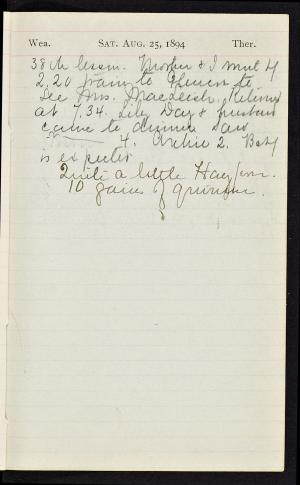 Wea. SAT. AUG. 25, 1894 Ther.
38th lesson. Mother & I went by
2.20 train to Glencoe to
see Mrs. MacLeish. Returned
at 7.34. Lily Day & husband
came to dinner
4. Archie 2. Baby
is expected
Quite a little Hay fever.
10 grains of quinine.